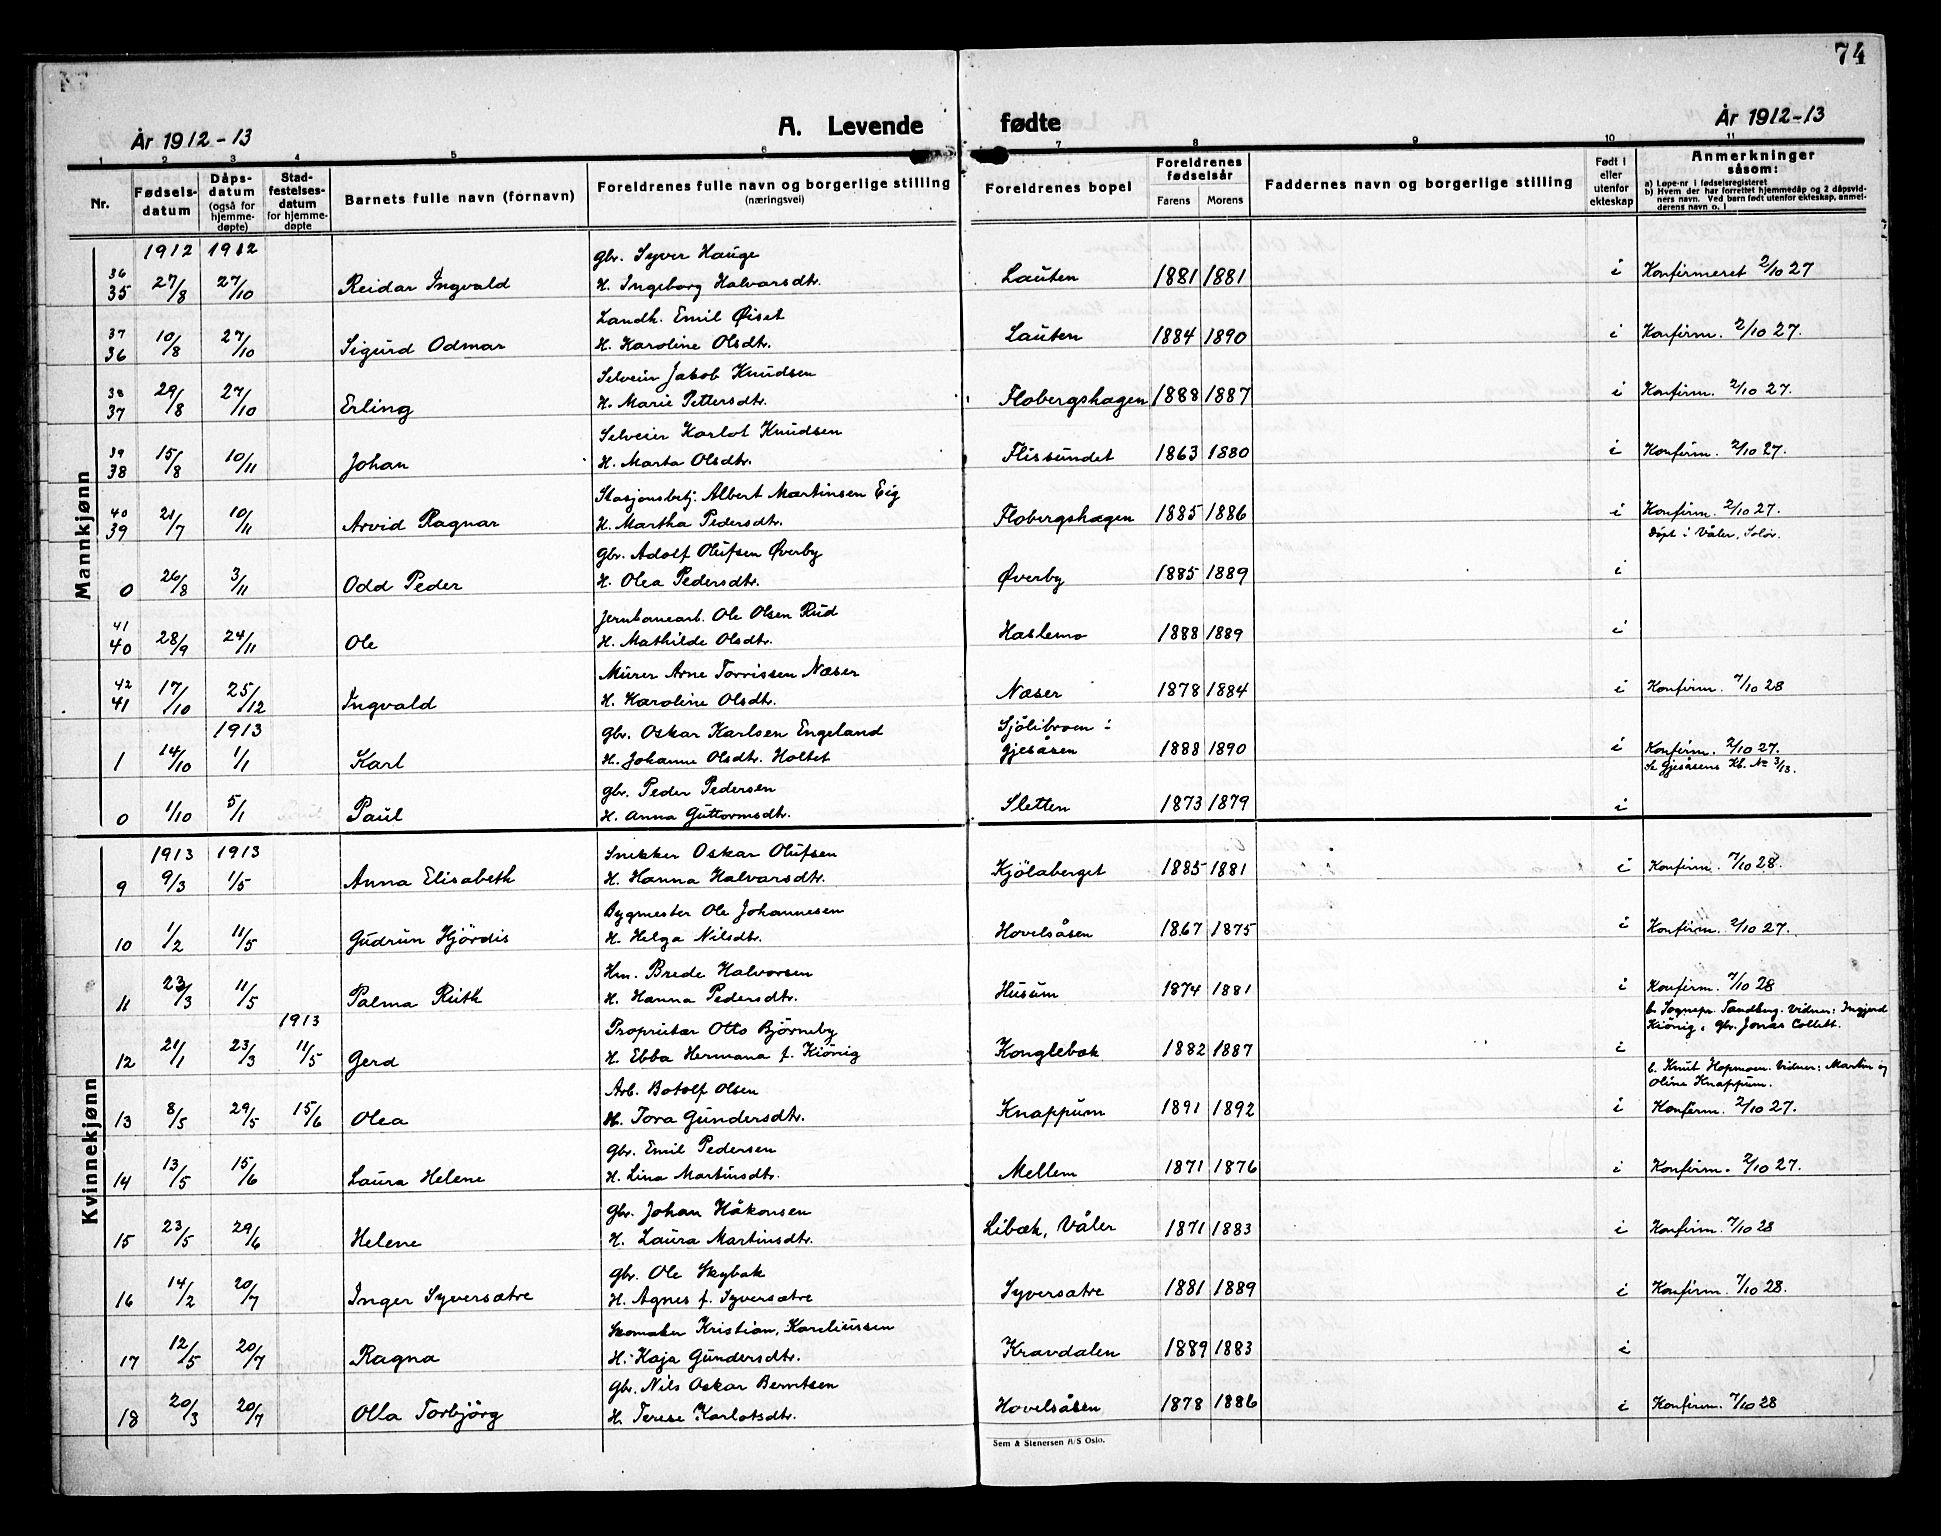 74
År 1912-13
A. Levende fødte
År 1912-13
1 2 3 4 5 6 7 8 9 10 11
Nr.
Fødsels-datum
Dåps-datum (også for hjemme-døpte)
Stad-festelses-datum for hjemme-døpte
Barnets fulle navn (fornavn)
Foreldrenes fulle navn og borgerlige stilling (næringsvei)
Foreldrenes bopel
Foreldrenes fødselsår
Farens Morens
Faddernes navn og borgerlige stilling
Født i eller utenfor ekteskap
Anmerkninger såsom:
a) Løpe-nr i fødselsregisteret
b) Hvem der har forrettet hjemmedåp og 2 dåpsvid-
ners navn. Ved barn født utenfor ekteskap, anmel-
derens navn o. l
Mannkjønn
1912 1912 gbr. Syver Hauge
36 35 27/8 27/10 Reidar Ingvald H. Ingeborg Halvarsdtr. Lauten 1881 1881 i Konfirmeret 2/10 27
Landh. Emil Øiset
37 36 10/8 27/10 Sigurd Odmar H. Karoline Olsdtr. Lauten 1884 1890 i Konfirm. 2/10 27.
Selveier Jakob Knudsen
38 37 29/8 27/10 Erling H. Marie Pettersdtr. Flobergshagen 1888 1887 i Konfirm. 2/10 27.
Selveier Karlot Knudsen
39 38 15/8 10/11 Johan H. Marta Olsdtr. Flissundet 1863 1880 i Konfirm. 2/10 27.
Stasjonsbetj. Albert Martinsen Eig
40 39 21/7 10/11 Arvid Ragnar H. Martha Pedersdtr. Flobergshagen 1885 1886 i Konfirm. 2/10 27.
Døpt i Våler, Solør.
gbr. Adolf Olufsen Øverby
0 26/8 3/11 Odd Peder H. Olea Pedersdtr. Øverby 1885 1889 i
Jernbanearb. Ole Olsen Rud
41 40 28/9 24/11 Ole H. Mathilde Olsdtr. Haslemo 1888 1889 i
Murer Arne Torrissen Næser
42 41 17/10 25/12 Ingvald H. Karoline Olsdtr. Næser 1878 1884 i Konfirm. 7/10 28
1913 gbr. Oskar Karlsen Engeland Sjölibroen i
1 14/10 1/1 Karl H. Johanne Olsdtr. Holtet gjesåsen 1888 1890 i Konfirm. 2/10 27.
Se Gjesåsens Kb. No 3/13.
gbr. Peder Pedersen
0 1/10 5/1 Paul H. Anna Guttormsdtr. Sletten 1873 1879 i
Kvinnekjønn
1913 1913 Snekker Oskar Olufsen
9 9/3 1/5 Anna Elisabeth H. Hanna Halvarsdtr. Kjölaberget 1885 1881 i Konfirm. 7/10 28.
Bygmester Ole Johannesen
10 1/2 11/5 Gudrun Hjördis H. Helga Nilsdtr. Hovelsåsen 1867 1875 i Konfirm. 2/10 27.
Hm. Brede Halvorsen
11 23/3 11/5 Palma Ruth H. Hanna Pedersdtr. Husum 1874 1881 i Konfirm. 7/10 28
1913 Proprietær Otto Björneby b. Sognepr. Tandberg. Vidner: Ingjerd
Kiönig, gbr. Jonas Collett.
12 21/1 23/3 11/5 Gerd H. Ebba Hermana f. Kiönig Konglebæk 1882 1887 i
Arb. Botolf Olsen b. Knut Hopmoen. Vidner: Martin og
Oline Knappum.
13 8/5 29/5 15/6 Olea H. Tora Gundersdtr. Knappum 1891 1892 i Konfirm. 2/10 27.
gbr. Emil Pedersen
14 13/5 15/6 Laura Helene H. Lina Martinsdtr. Mellem 1871 1876 i Konfirm. 2/10 27.
gbr. Johan Håkonsen
15 23/5 29/6 Helene H. Laura Martinsdtr. Libæk, Våler 1871 1883 i Konfirm. 7/10 28
gbr. Ole Skybak
16 14/2 20/7 Inger Syversætre H. Agnes f. Syversætre Syversætre 1881 1889 i Konfirm. 7/10 28.
Skomaker Kristian, Kareliussen
17 12/5 20/7 Ragna H. Kaja Gundersdtr. Kravdalen 1889 1883 i
gbr. Nils Oskar Berntsen
18 20/3 20/7 Olla Torbjörg H. Terese Karlotsdtr. Hovelsåsen 1878 1886 i Konfirm. 7/10 28
Sem & Stenersen A/S Oslo.